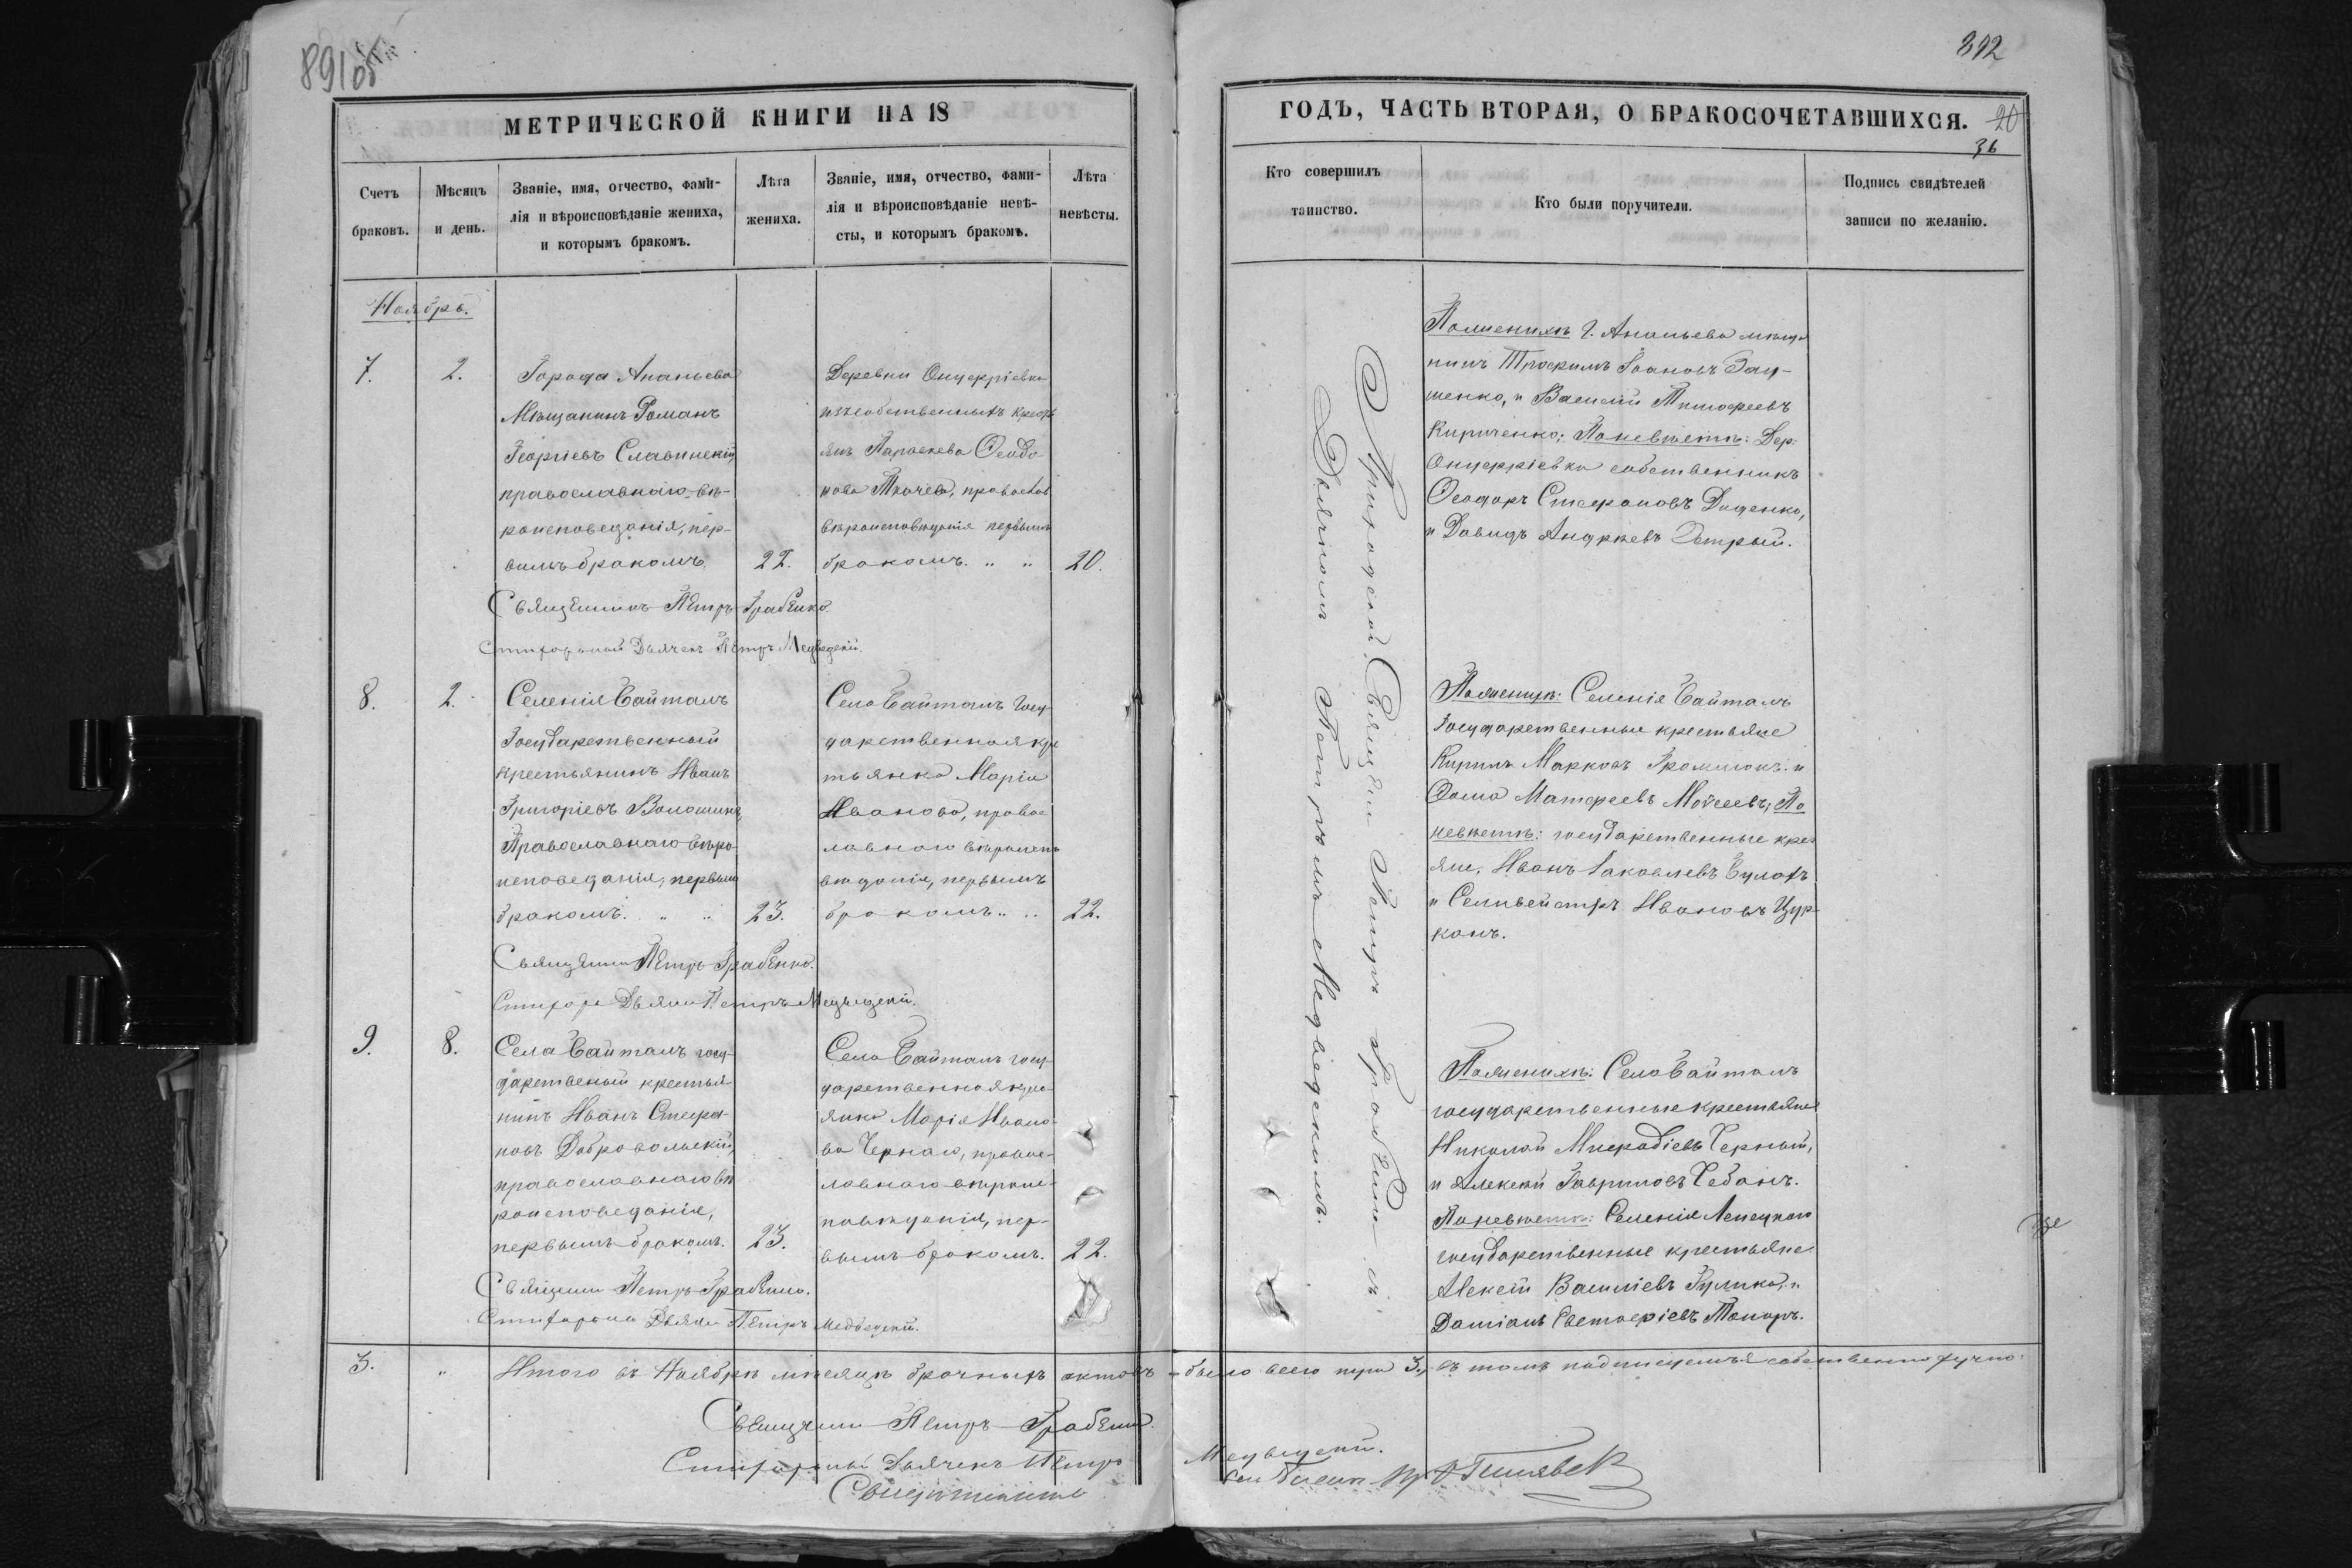 891об
МЕТРИЧЕСКОЙ КНИГИ НА 18
Счетъ браковъ.
Мѣсяцъ и день.
Званіе, имя, отчество, фами-
лія и вѣроисповѣданіе жениха,
и которымъ бракомъ.
Лѣта жениха.
Званіе, имя, отчество, фами-
лія и вѣроисповѣданіе невѣ-
сты, и которымъ бракомъ.
Лѣта невѣсты.
Ноябрь.
7.
2.
Города Ананьева
Мѣщанинъ Романъ
Георгіевъ Славинскій,
православнаго вѣ-
роисповеданія, пер-
вымъ бракомъ.
22.
Деревни Онуфріевки
изъ собственныхъ крест
янъ Параскева Ѳеодо
рова Ткачева, православ
вѣроисповѣданія первымъ
бракомъ. „ „
20.
Священникъ Петръ Грабенко.
Стихарный Дьячекъ Петръ Медведскій.
8.
2.
Селенія Байталъ
Государственный
крестьянинъ Иванъ
Григоріевъ Волошинъ,
Православнаго вѣро-
исповеданія, первымъ
бракомъ. „ „
23.
Села Байталъ госу-
дарственная кре
тьянка Марія
Иванова, правос
лавнаго вѣроиспо
вѣданія, первымъ
бракомъ „ „
22.
Священни Петръ Грабенко.
Стихарн Дьячи Петръ Медведскій.
9.
8.
Села Байталъ госу-
дарственый крестья-
нинъ Иванъ Стефа-
новъ Добровольскій,
православнаго вѣ
роисповеданія,
первымъ бракомъ.
23.
Села Байталъ госу-
дарственная кре-
янка Марія Ивано-
ва Чернаго, правос-
лавнаго вѣроис-
повѣданія, пер-
вымъ бракомъ.
22.
Священи Петръ Грабенко.
Стихарны Дьячи Петръ Медведскій.
3.
„
Итого въ Ноябрѣ мѣсяцѣ брачныхъ актовъ
Священи Петръ Грабенко
Стихарный Дьячекъ Петръ
892
ГОДЪ, ЧАСТЬ ВТОРАЯ, О БРАКОСОЧЕТАВШИХСЯ.
20
36
Кто совершилъ таинство.
Кто были поручители.
Подпись свидѣтелей записи по желанію.
Приходской Священи Петръ Грабенко съ
Дьячкомъ Петромъ Медведскимъ.
По женихѣ г. Ананьева мѣща
нинъ Трофимъ Іоановъ Зау-
шенко, и Василій Тимофеевъ
Кириченко; По невѣстѣ: Дер:
Онуфріевки собственникъ
Ѳеодоръ Стефановъ Диденко,
и Давидъ Андреевъ Быстрый.
По женихѣ: Селенія Байталъ
Государственные крестьяне
Кирилъ Марковъ Громлюкъ и
Ѳома Матфеевъ Мовсеевъ; По
невѣстѣ: государственные крес
яне, Иванъ Іаковлевъ Булатъ
и Селивейстръ Ивановъ Цур-
канъ.
По женихѣ: Села Байталъ
государственные крестьяне
Николай Мифодіевъ Черный,
и Алексей Гавриловъ Чебанъ.
По невѣстѣ: Селенія Липецкаго
государственные крестьяне
Алексей Василіевъ Гулика, и
Даміанъ Евстафіевъ Топоръ.
было всего три 3, въ томъ подписуемъся собственно ручно:
Медведскій.